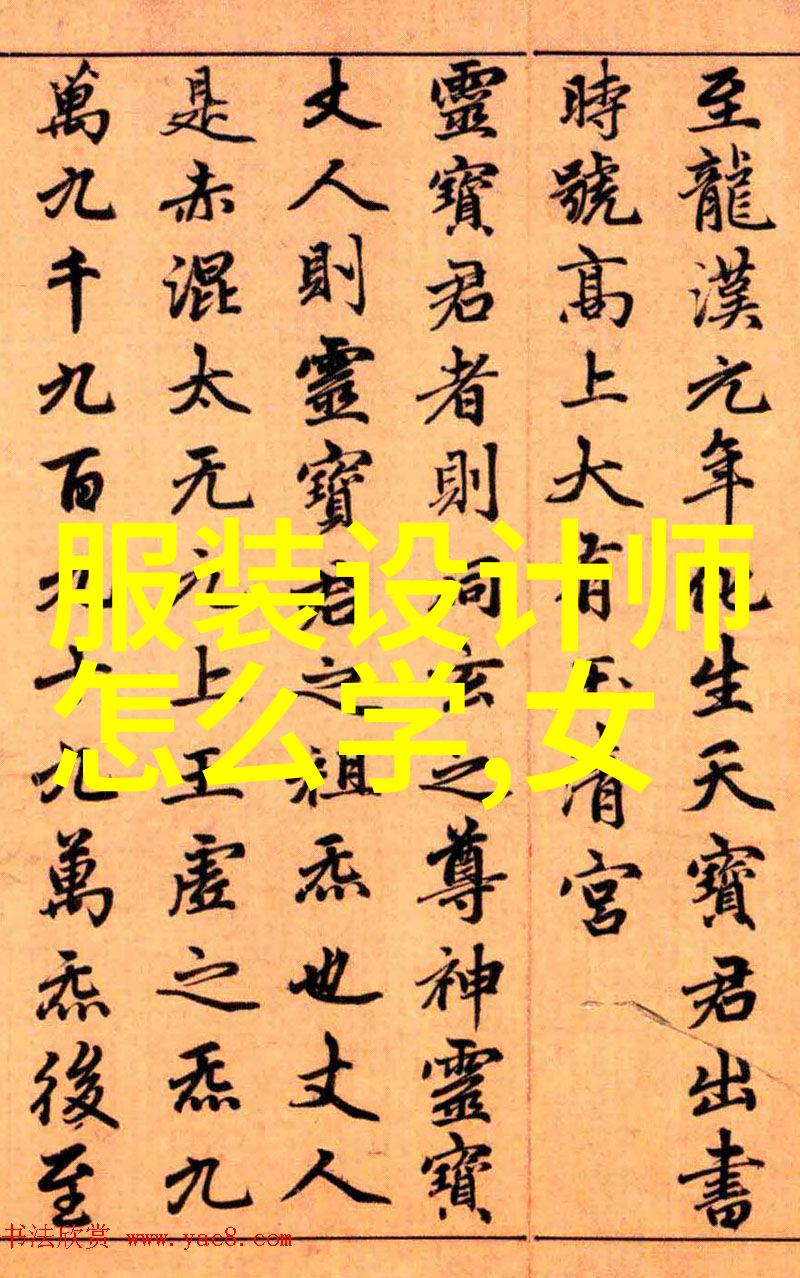 至龍漢元年化生天寶君出書
時號高上大有玉清宮
靈寶君者則洞玄之尊神靈寶
丈人則靈寶君之祖炁也丈人
是赤混太无元上玉虛之炁九
萬九千九百九十九萬炁後至
服装设计师
怎么学,女
书法欣赏 www.yac8.com